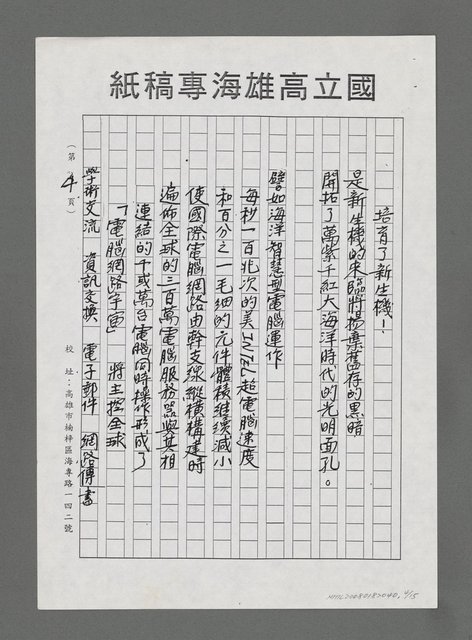 國立高雄海專稿紙
培育了新生機！
是新生機的來臨將揚棄舊存的黑暗
開拓了萬紫千紅大海洋時代的光明面孔。
譬如海洋智慧型電腦運作
每秒一百兆次的美INTEL超電腦速度
和百分之一毛細的元件體積繼續減小
使國際電腦網路由幹支線縱橫構建時
遍佈全球的三百萬電腦服務器與其相
連結的千或萬台電腦同時操作形成了
「電腦網路宇宙」 將主控全球
學術交流 資訊交換 電子郵件 網路傳書
（第 4 頁）
校 址：高雄市楠梓區海專路一四二號
NMTL20080182040, 4/15